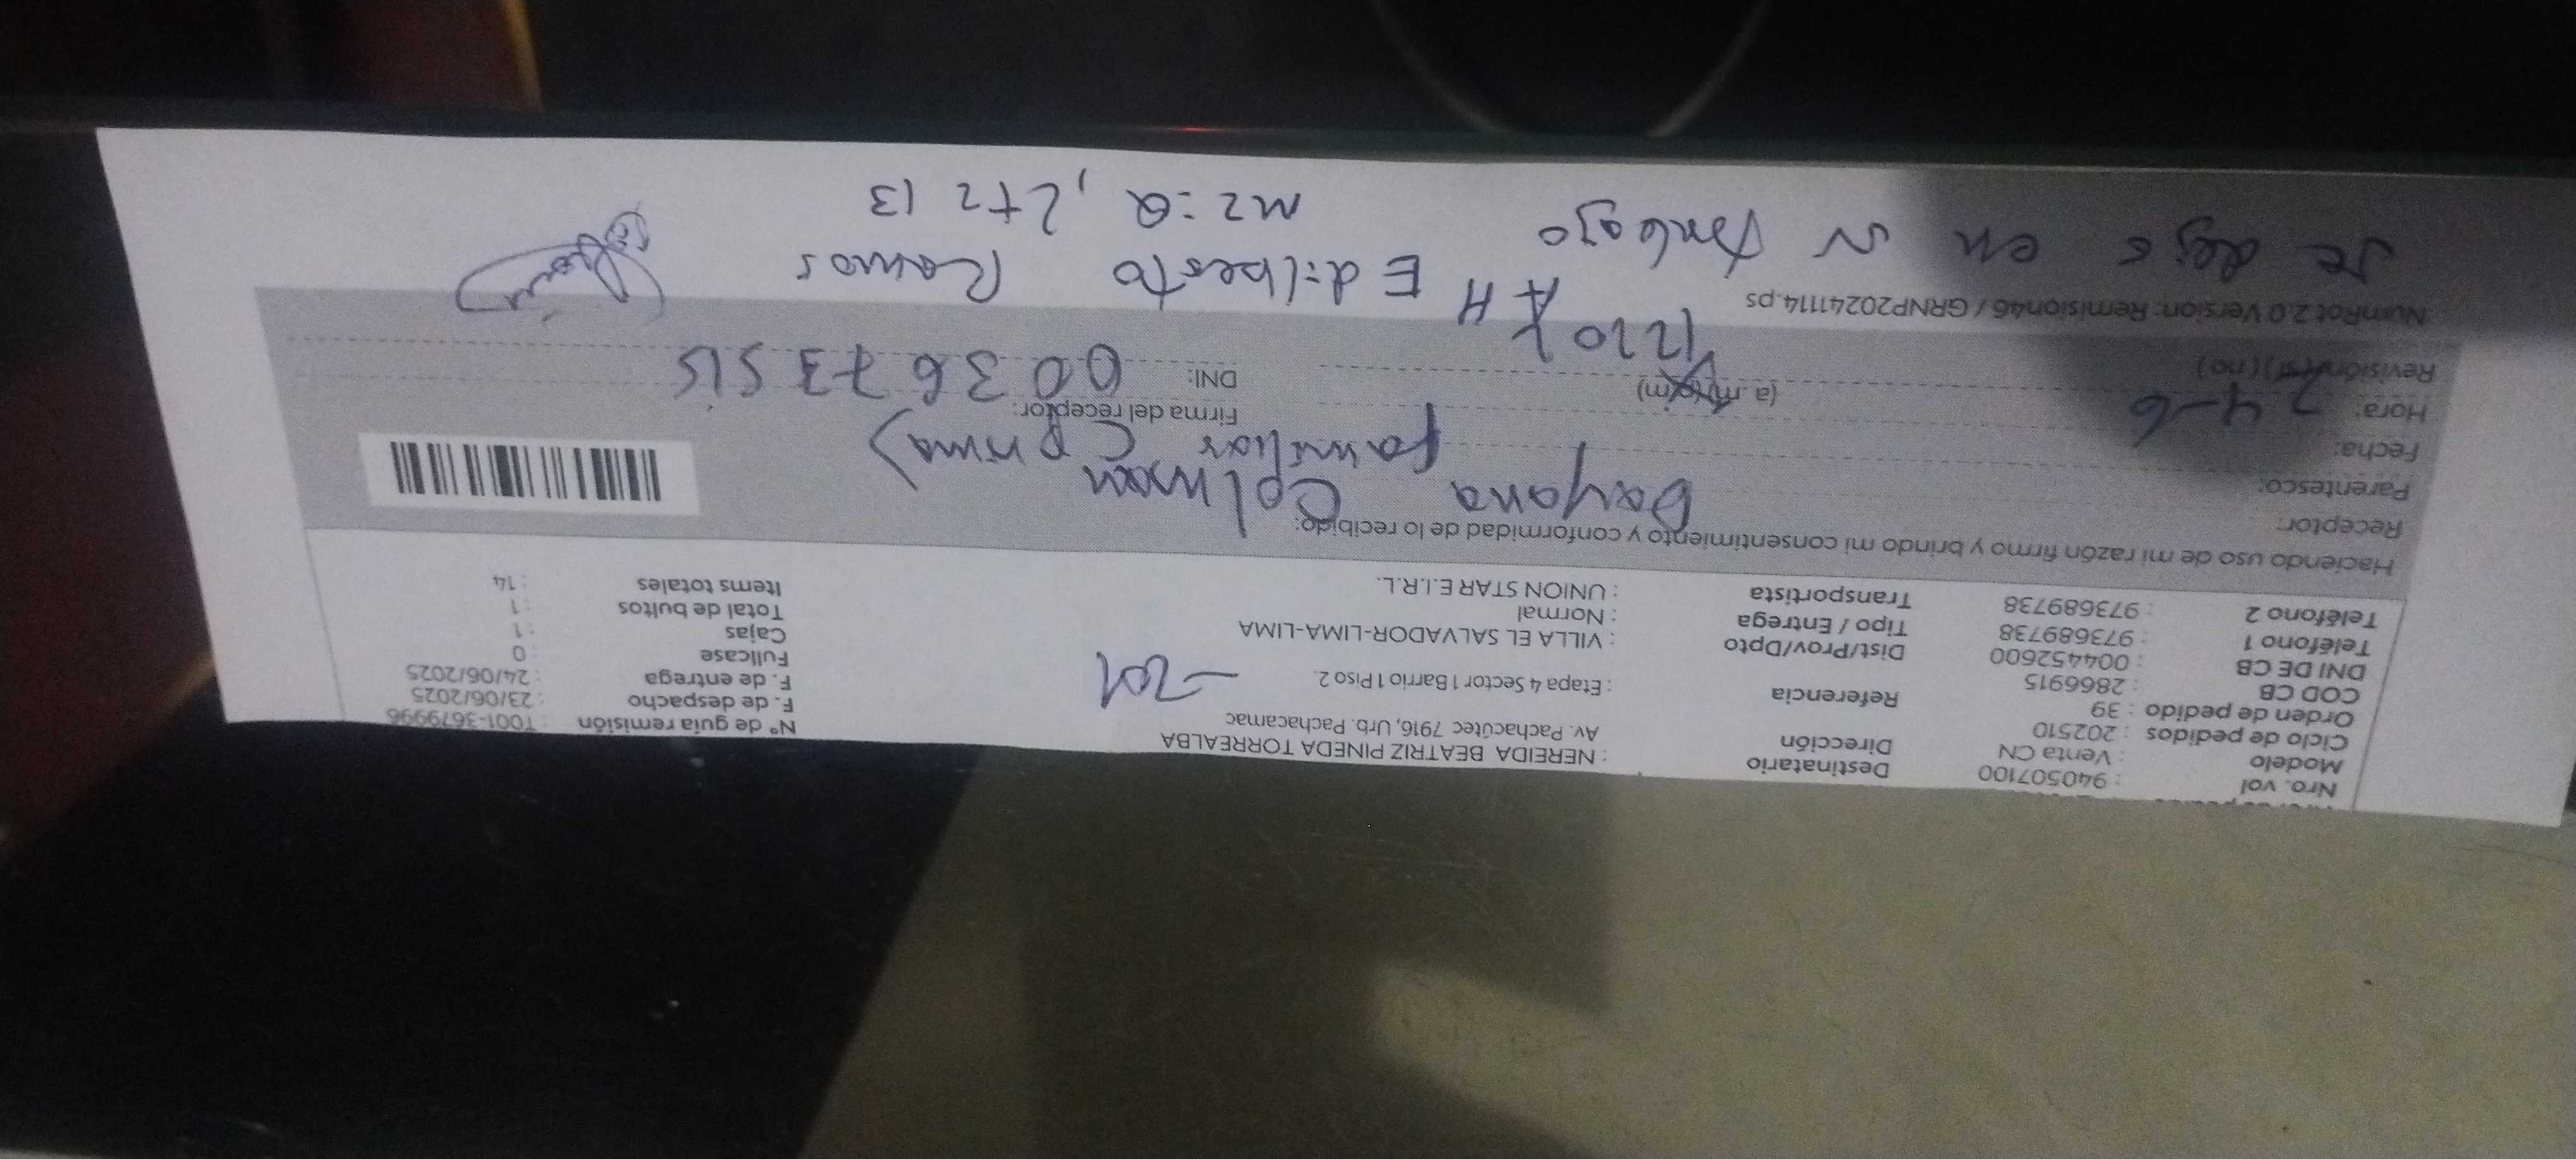 Nro. vol : 940507100
Modelo : Venta CN
Ciclo de pedidos : 202510
Orden de pedido : 39
COD CB : 2866915
DNI DE CB : 004452600
Teléfono 1 : 973689738
Teléfono 2 : 973689738
Destinatario : NEREIDA BEATRIZ PINEDA TORREALBA
Dirección Av. Pachacútec 7916, Urb. Pachacamac
Referencia : Etapa 4 Sector 1 Barrio 1 Piso 2. - 201
Dist/Prov/Dpto : VILLA EL SALVADOR-LIMA-LIMA
Tipo / Entrega : Normal
Transportista : UNION STAR E.I.R.L.
N° de guia remisión : T001-3679996
F. de despacho : 23/06/2025
F. de entrega : 24/06/2025
Fullcase : 0
Cajas : 1
Total de bultos : 1
Items totales : 14
Haciendo uso de mi razón firmo y brindo mi consentimiento y conformidad de lo recibido:
Receptor: Dayana
Parentesco: familiar (prima)
Fecha: 24-6
Hora: (a.m/p.m) 1220
Revisión (si) (no)
Firma del receptor:
DNI: 003673515
NumRot 2.0 Version: Remision46 / GRNP20241114.ps
AH Edilberto Ramos
Se dejo en su
mz=Q, Ltz 13